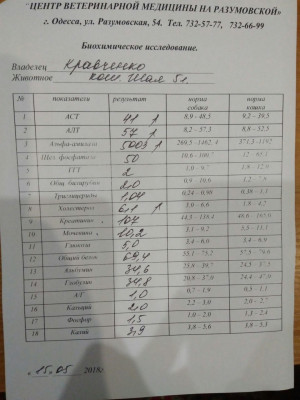 "ЦЕНТР ВЕТЕРИНАРНОЙ МЕДИЦИНЫ НА РАЗУМОВСКОЙ"
г. Одесса, ул. Разумовская, 54. Тел. 732-57-77, 732-66-99
Биохимическое исследование.
Владелец Кравченко
Животное кот 5 г.
№ показатели результат норма собака норма кошка
1 АСТ 41 8,9 - 48,5 9,2 - 39,5
2 АЛТ 57 8,2 - 57,3 8,8 - 52,5
3 Альфа-амилаза 5003 269,5 -1462,4 371,3 -1192
4 Щел. фосфатаза 50
5 ГГТ 2
6 Общ. билирубин 2,0
7 Триглицериды 1,04 0,24 - 0,98 0,38 - 1,1
8 Холестерол 6,1 3,0 - 6,6 1,9 - 4,2
9 Креатинин 107 44,3 - 138,4
10 Мочевина 10,2 3,1 - 9,2 5,5 - 11,1
11 Глюкоза 5,0 3,4 - 6,0 3,4 - 6,9
12 Общий белок 69,4 55,1 - 75,2 57,5 - 79,6
13 Альбумин 34,6
14 Глобулин 34,8 24,4 - 47,0
15 А/Г 1,0 0,7 - 1,9 0,5 - 1,1
16 Кальций 2,0 2,2 - 3,0 2,0 - 2,7
17 Фосфор 1,5 1,0 - 2,0 1,3 - 2,4
18 Калий 3,9 3,8 - 5,6 3,8 - 5,3
15.05 2018г.